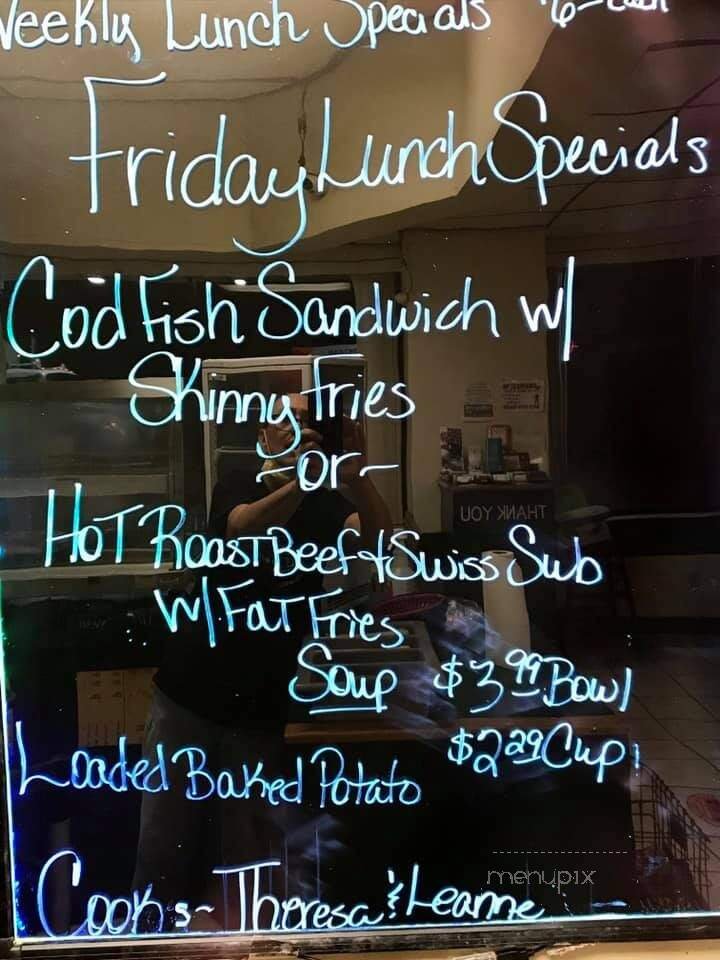 Weekly Lunch Specials $6- Each
Friday Lunch Specials
Cod Fish Sandwich w/
Skinny Fries
~or~
Hot Roast Beef & Swiss Sub
w/ Fat Fries
Soup $3.99 Bowl
$2.29 Cup
Loaded Baked Potato
Cooks ~ Theresa & Leanne
THANK YOU
menupix